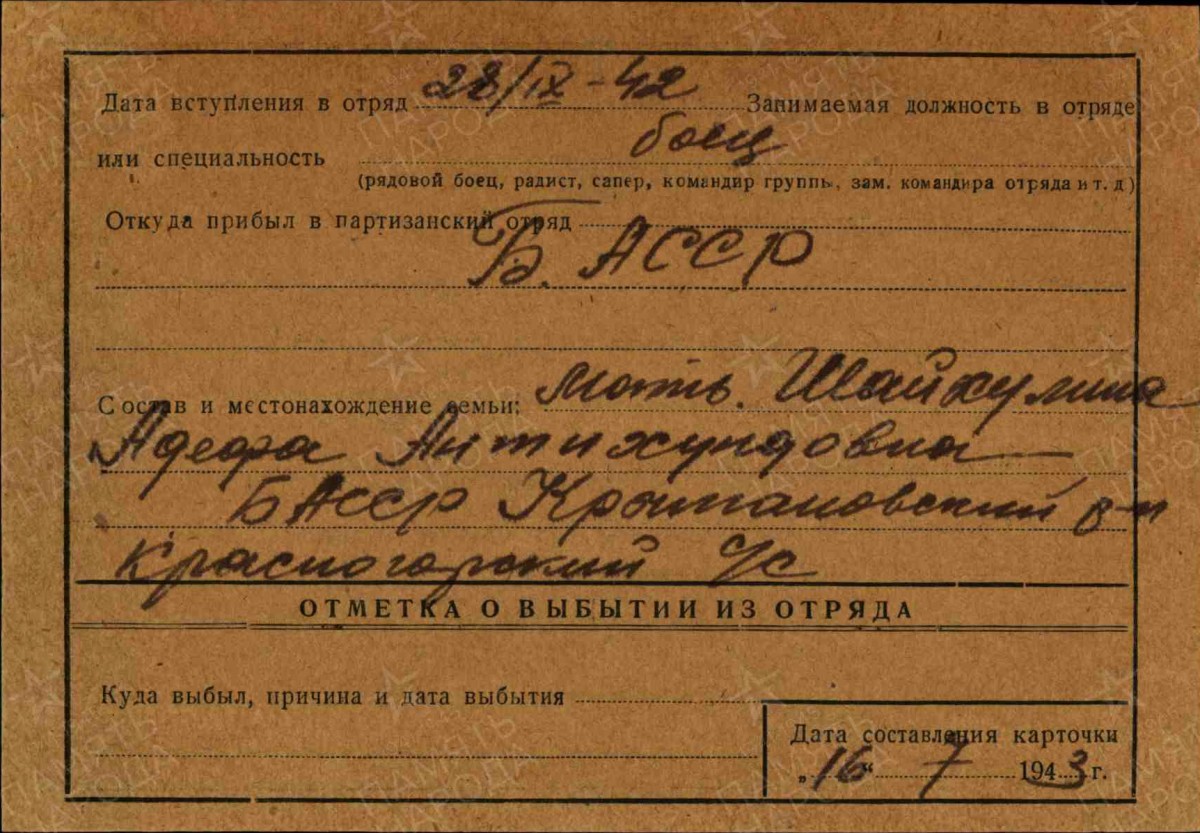 Дата вступления в отряд 28/IX-42 Занимаемая должность в отряде
или специальность боец
(рядовой боец, радист, сапер, командир группы, зам. командира отряда и т. д)
Откуда прибыл в партизанский отряд
Б. АССР
Состав и местонахождение семьи: мать. Шайхулина
Адефа Антихундовна
БАССР Крымановский р-н
Красногорский с/с
ОТМЕТКА О ВЫБЫТИИ ИЗ ОТРЯДА
Куда выбыл, причина и дата выбытия
Дата составления карточки
„16“ 7 1943 г.
ПАМЯТЬ НАРОДА